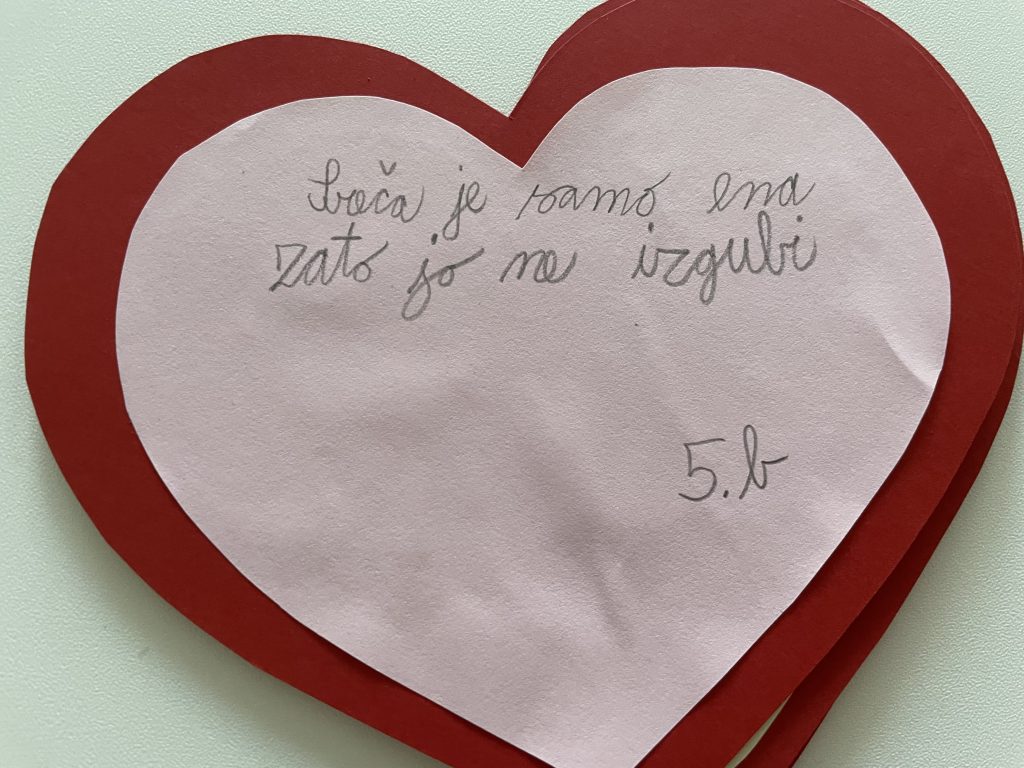 je samo ena
zato jo ne izgubi
5.b